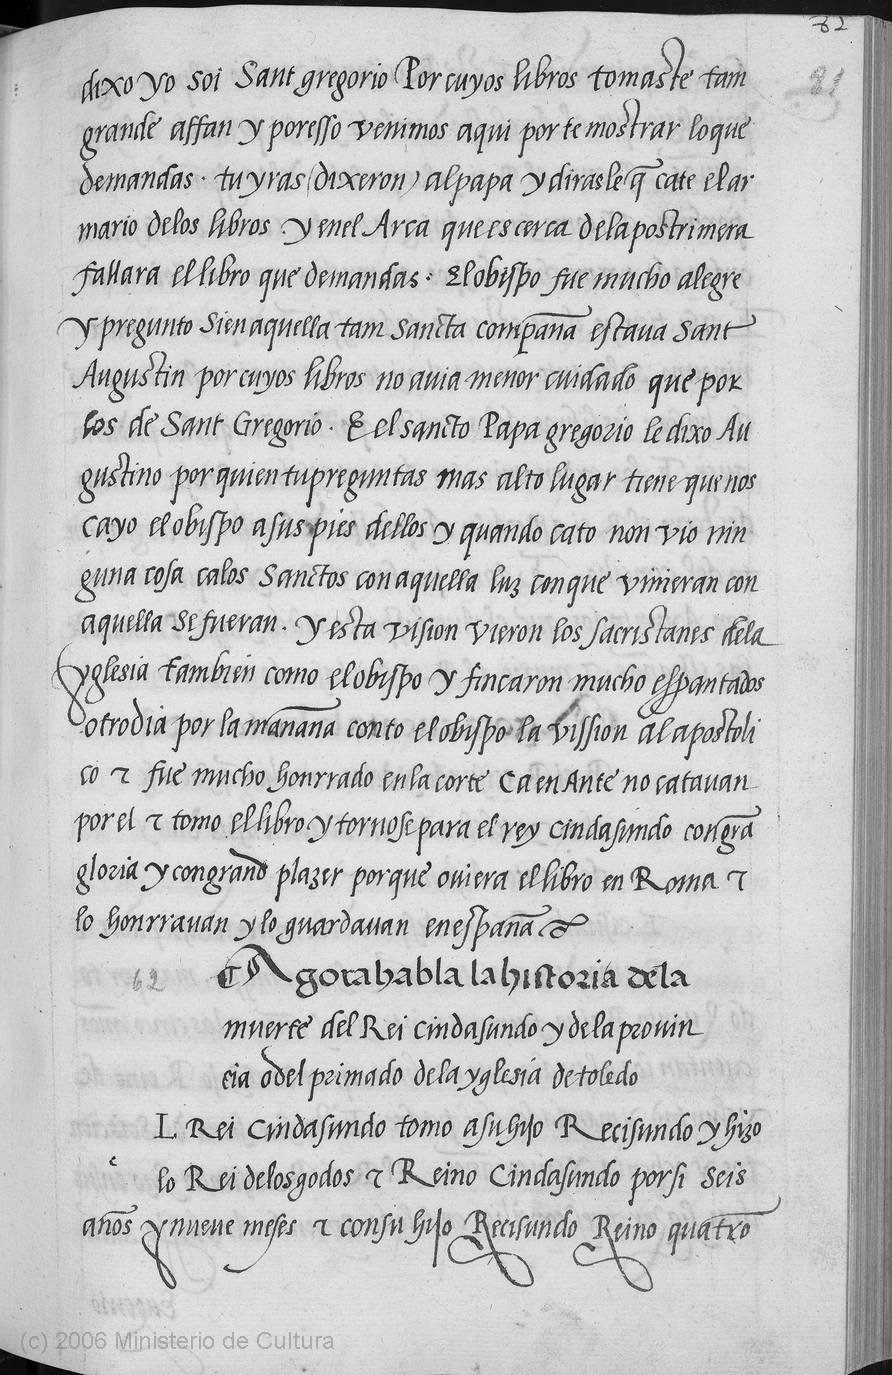 82
81
dixo yo soi Sant gregorio Por cuyos libros tomaste tam
grande affan y poresso venimos aqui por te mostrar lo que
demandas · tu yras (dixeron) al papa y dirasle q̃ cate el ar
mario delos libros · y enel Arca que es cerca dela postrimera
fallara el libro que demandas · El obispo fue mucho alegre
y pregunto si en aquella tam sancta compaña estaua Sant
Augustin por cuyos libros no auia menor cuidado que por
los de Sant Gregorio · E el sancto Papa gregorio le dixo Au
gustino por quien tu preguntas mas alto lugar tiene que nos
Cayo el obispo a sus pies dellos y quando cato non vio nin
guna cosa calos Sanctos con aquella luz con que vinieran con
aquella se fueran · y esta vision vieron los sacristanes dela
yglesia tambien como el obispo y fincaron mucho espantados
otro dia por la mañana conto el obispo la vission al apostoli
co τ fue mucho honrrado en la corte Ca en Ante no catauan
por el τ tomo el libro y tornose para el rey cindasundo con grã
gloria y con grand plazer porque ouiera el libro en Roma τ
lo honrrauan y lo guardauan en españa
62
¶ Agora habla la historia dela
muerte del Rei cindasundo y dela prouin
cia o del primado dela yglesia de toledo
L Rei Cindasundo tomo a su hijo Recisundo y hizo
e
lo Rei delos godos τ Reino Cindasundo por si seis
años y nueue meses τ con su hijo Recisundo Reino quatro
(c) 2006 Ministerio de Cultura